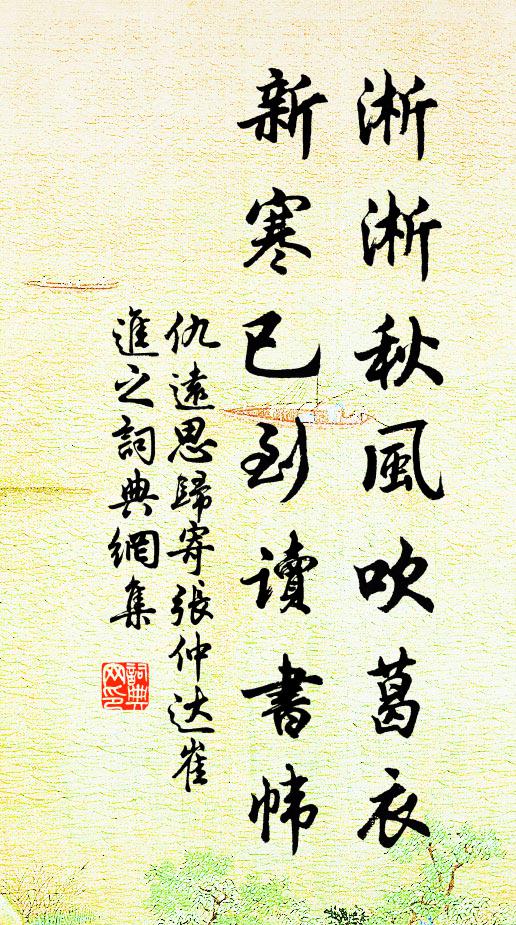 淅淅秋風吹葛衣
新寒已到讀書幃
仇遠思歸寄張仲达崔
進之詞典網集
詞典网印